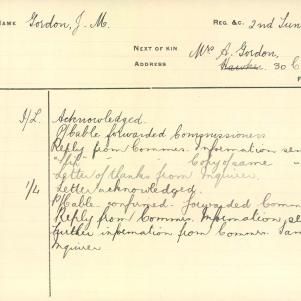 NAME Gordon, J. M. REG. &C. 2nd Tun
NEXT OF KIN Mrs A. Gordon,
ADDRESS Hawker. 30 C
F
Acknowledged.
P/Cable forwarded Commissioners
Reply from Commrs. Information sen
" " Copy same "
Letter of thanks from Inquirer.
1/4 Letter acknowledged.
P/Cable confirmed. Forwarded Comm
Reply from Commrs. Information se
Further information from Commrs. San
Inquirer